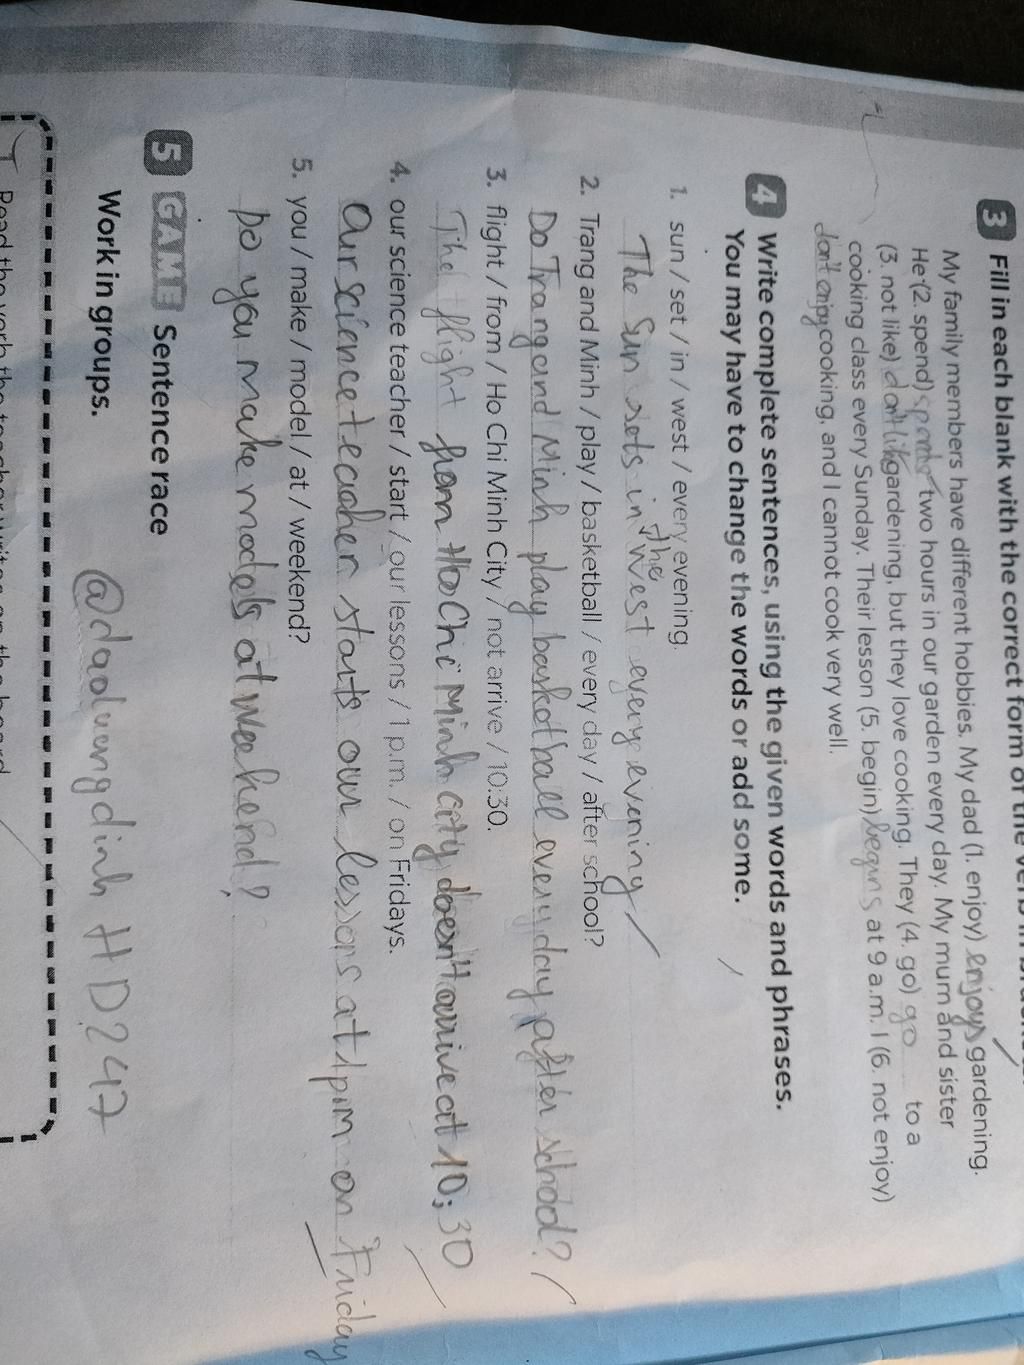 3 Fill in each blank with the correct form of the verb in
My family members have different hobbies. My dad (1. enjoy) enjoys gardening.
He (2. spend) two hours in our garden every day. My mum and sister
(3. not like) don't like gardening, but they love cooking. They (4. go) go to a
cooking class every Sunday. Their lesson (5. begin) begins at 9 a.m. I (6. not enjoy)
don't enjoy cooking, and I cannot cook very well.
4 Write complete sentences, using the given words and phrases.
You may have to change the words or add some.
1. sun / set / in / west / every evening.
The Sun sets in the West every evening
2. Trang and Minh / play / basketball / every day / after school?
Do Trang and Minh play basketball every day after school?
3. flight / from / Ho Chi Minh City / not arrive / 10:30.
The flight from Ho Chi Minh city doesn't arrive at 10:30
4. our science teacher / start / our lessons / 1 p.m. / on Fridays.
Our science teacher starts our lessons at 1pm on Friday
5. you / make / model / at / weekend?
Do you make models at weekend?
5 GAME Sentence race
Work in groups.
@daoduongdinh HD247